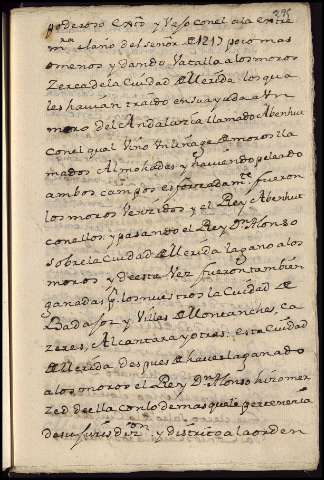 poderoso exto y veso con el a la extre
mra el año del señor de 1217 poco mas
o menos y dando Vatalla a los moros
Zerca de la Ciudad de Merida los qua
les havian traido en su ayuda a Vn
moro del Andaluzia llamado Abenhut
con el qual Vino Vn linage de moros lla
mados Almohades y haviendo peleado
ambos campos esforzadamte. fueron
los moros Venzidos y el Rey Abenhut
con ellos: y pasando el Rey Dn. Alonso
sobre la Ciudad de Merida la gano a los
moros y de esta Vez fueron tambien
ganadas pr. los nuestros la Ciudad de
Badajos y Villas de Montanches, Ca
zeres, Alcantara y otras: esta Ciudad
de Merida despues de haverla ganado
a los moros el Rey Dn. Alonso hizo mer
zed de ella con lo demas que le pertenezia
de su jurisdizon. y districto a la orden